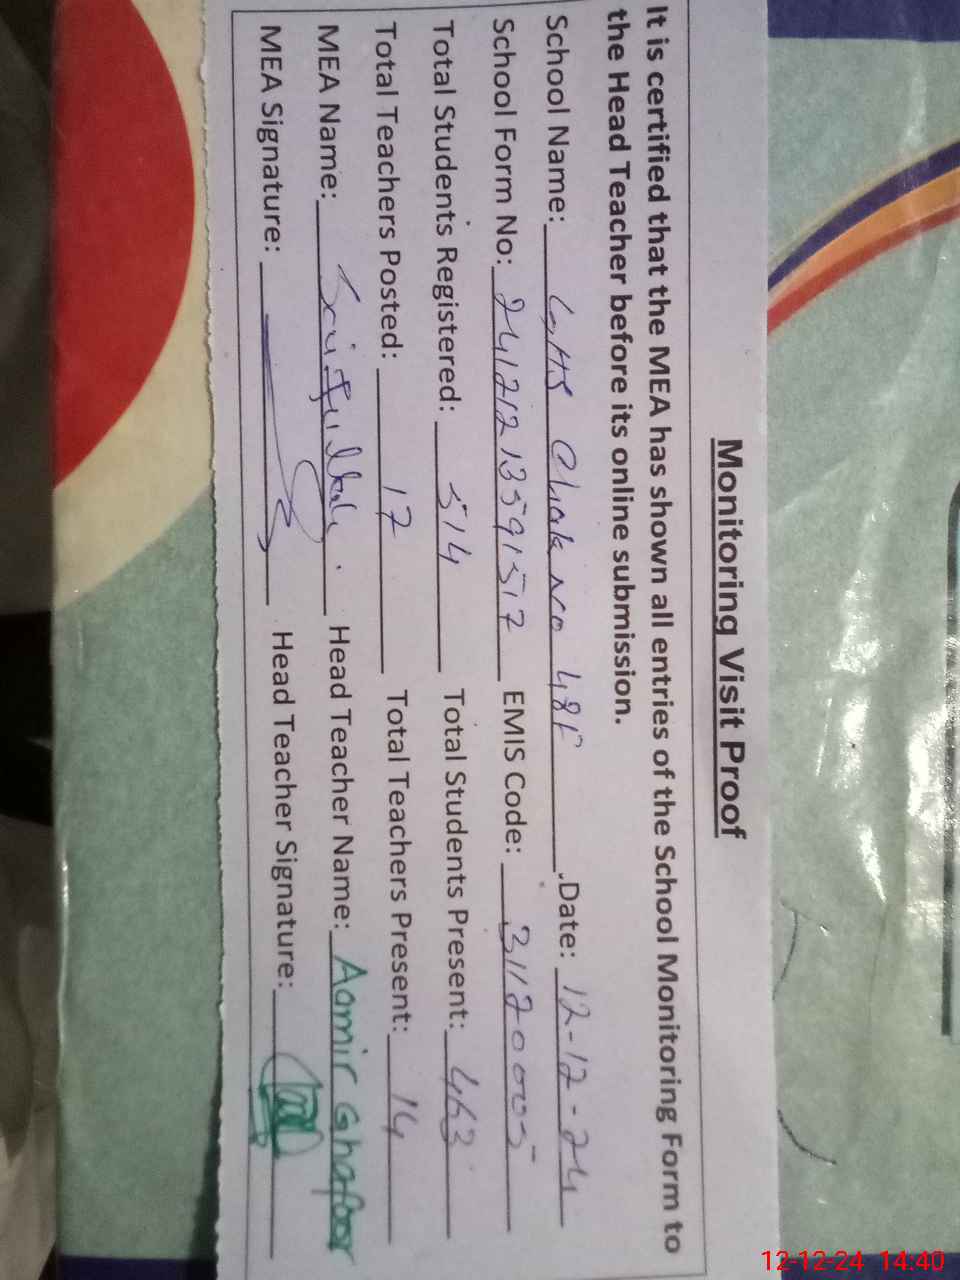 Monitoring Visit Proof
It is certified that the MEA has shown all entries of the School Monitoring Form to
the Head Teacher before its online submission.
School Name: GHS Chak No 48F Date: 12-12-24
School Form No: 24121213591517 EMIS Code: 31120005
Total Students Registered: 514 Total Students Present: 463
Total Teachers Posted: 17 Total Teachers Present: 14
MEA Name: Saif ullah. Head Teacher Name: Aamir Ghafoor
MEA Signature: Head Teacher Signature:
12-12-24 14:40